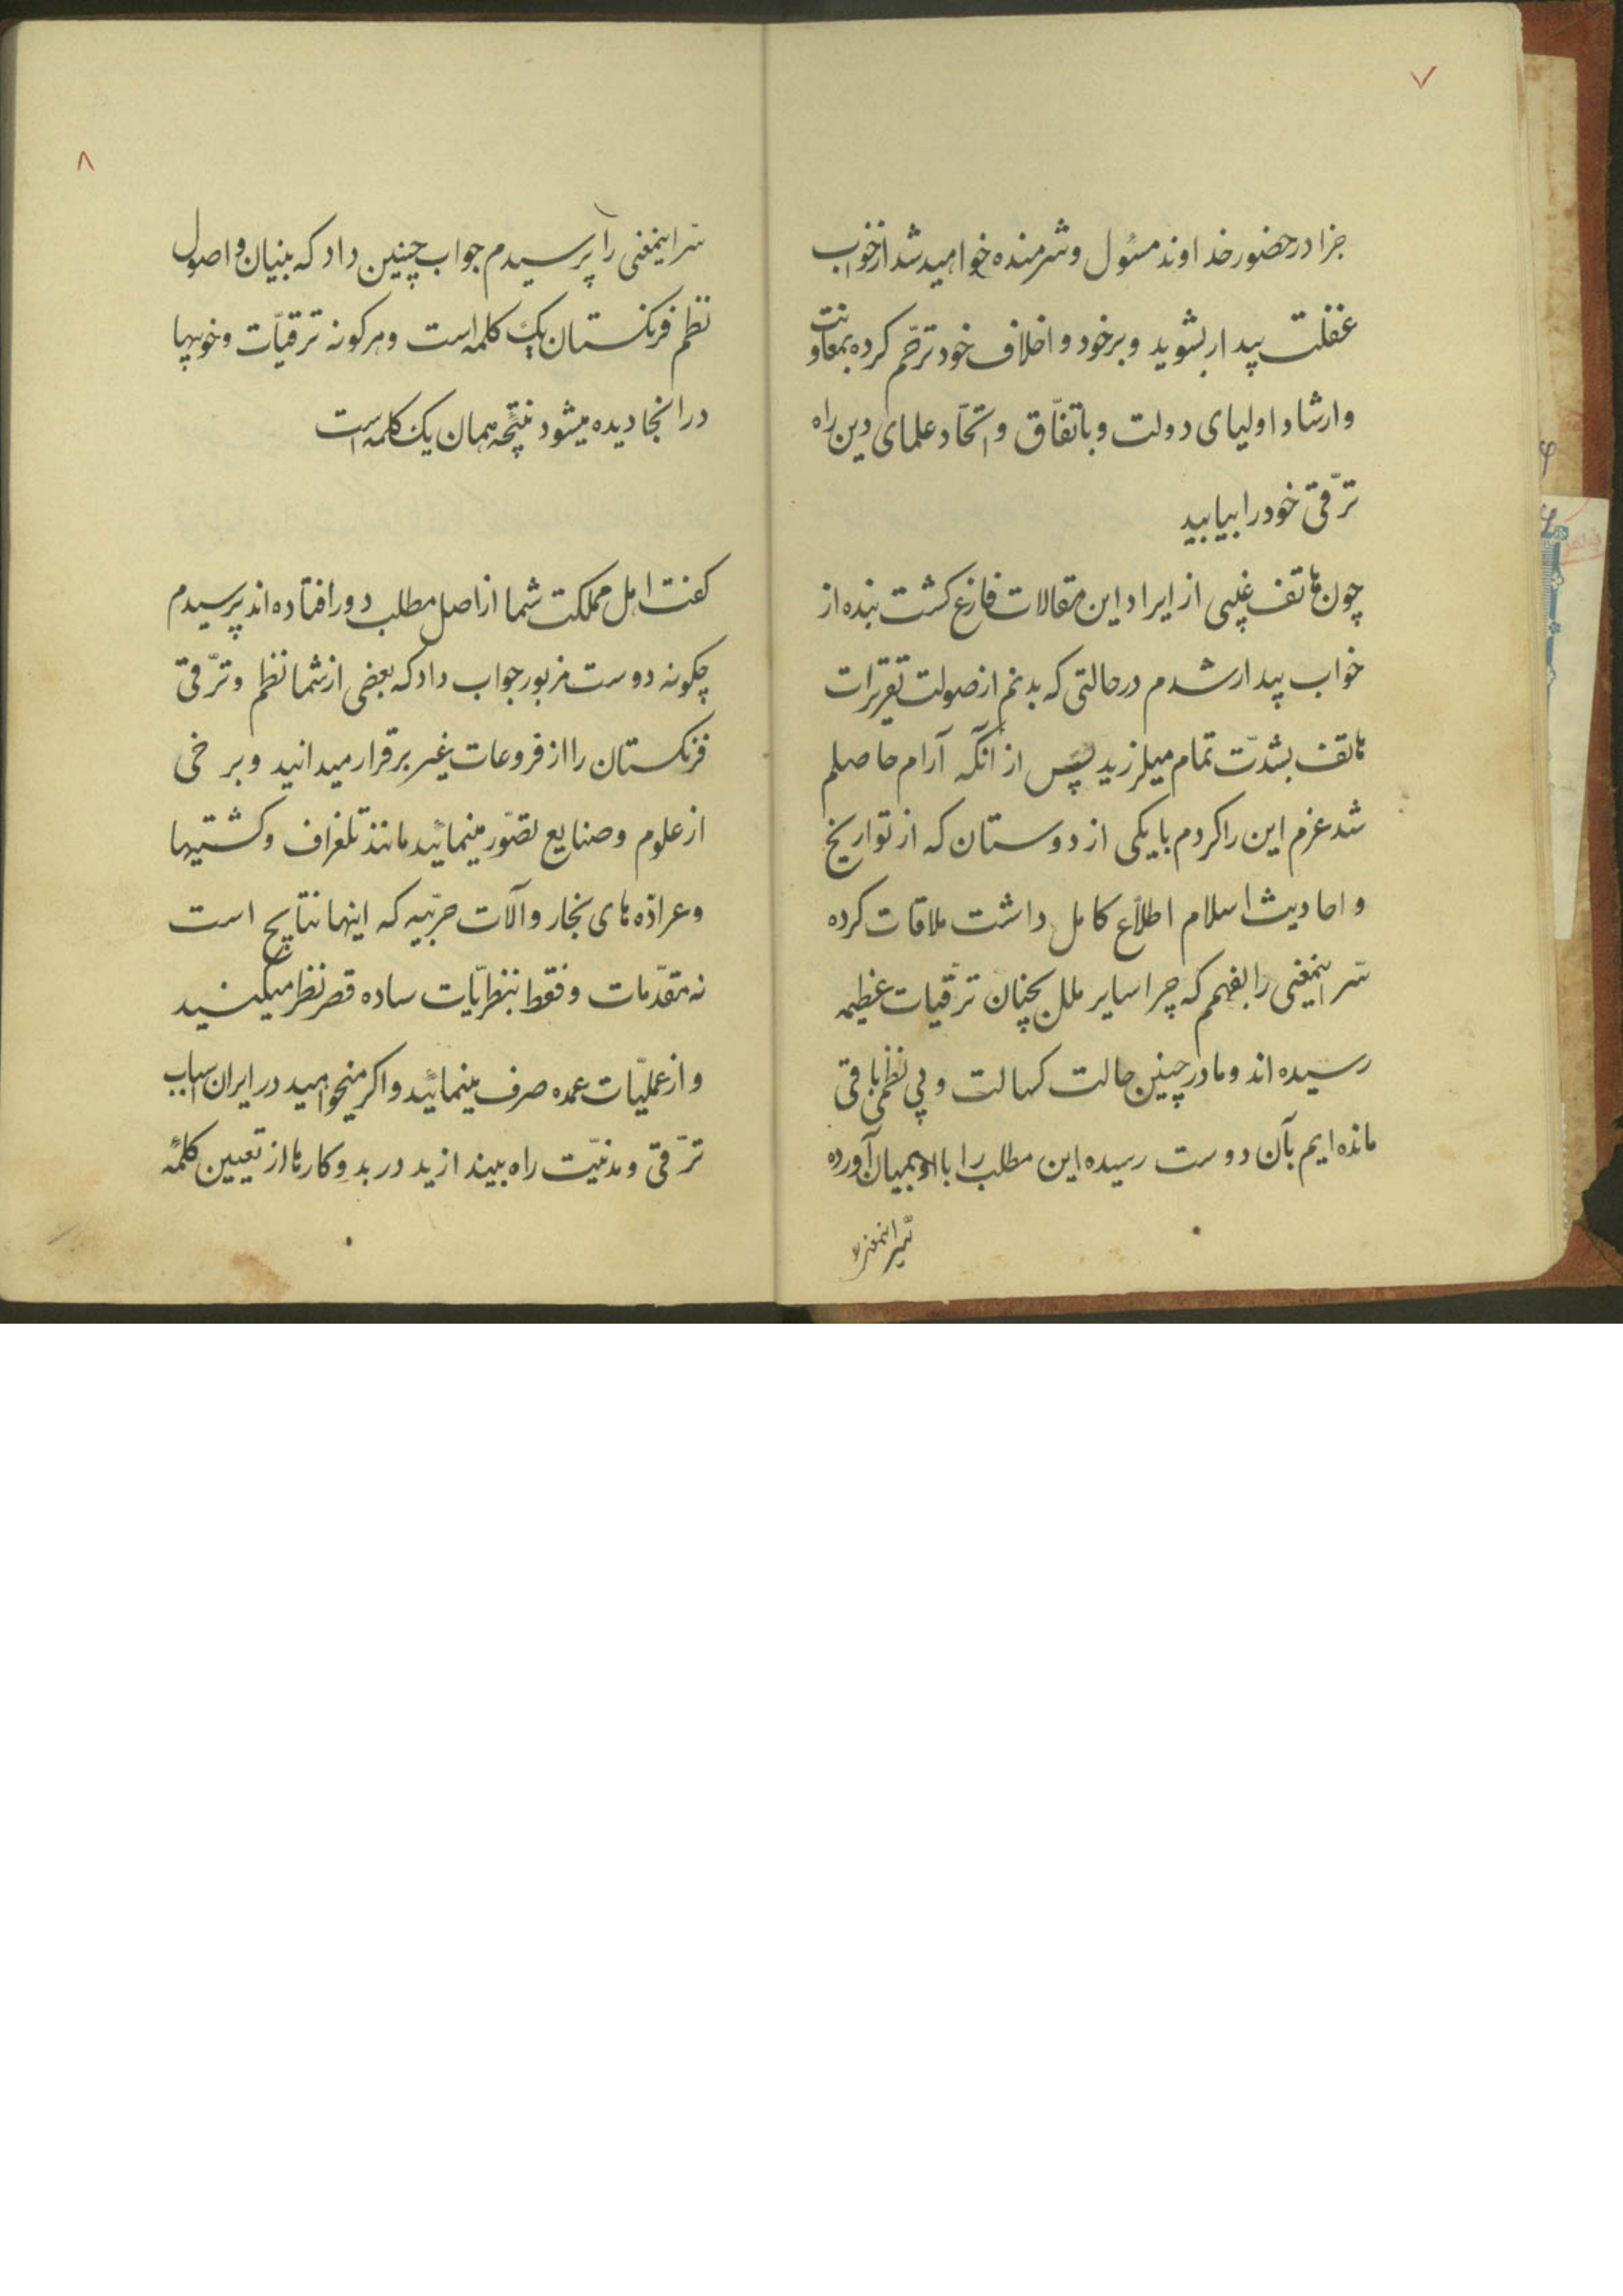 ٧
جزا در حضور خداوند مسئول و شرمنده خواهید شد از خواب
غفلت بیدار بشوید و بر خود و اخلاف خود ترحّم کرده بمعاونت
و ارشاد اولیای دولت و باتفّاق و اتّحاد علمای دین راه
ترّقی خود را بیابید
چون هاتف غیبی از ایراد این مقالات فارغ کشت بنده از
خواب بیدار شدم در حالتی که بدنم از صولت تقریرات
هاتف بشدّت تمام میلرزید پس از آنکه آرام حاصلم
شد عزم این را کردم با یکی از دوستان که از تواریخ
و احادیث اسلام اطلّاع کامل داشت ملاقات کرده
سّر اینمعنی را بفهمم که چرا سایر ملل بچنان ترقّیات عظیمه
رسیده اند و ما در چنین حالت کسالت و بی نظمی باقی
مانده ایم بآن دوست رسیده این مطلب را با او بمیان آورده
سّر اینمعنی را
٨
سّر اینمعنی را پرسیدم جواب چنین داد که بنیان و اصول
نظم فرنکستان یک کلمه است و هر کونه ترقیّات و خوبیها
در انجا دیده میشود نتیجه همان یک کلمه است
کفت اهل مملکت شما از اصل مطلب دور افتاده اند پرسیدم
چکونه دوست مزبور جواب داد که بعضی از شما نظم و ترّقی
فرنکستان را از فروعات غیر برقرار میدانید و برخی
از علوم و صنایع تصّور مینمائید مانند تلغراف و کشتیها
و عرادّه های بخار و آلات حربّیه که اینها نتایج است
نه مقدّمات و فقط بنظریّات ساده قصر نظر میکنید
و از عملیّات عمده صرف مینمائید و اکر میخواهید در ایران اسباب
ترّقی و مدنیّت راه بیندازید در بدو کارها از تعیین کلمهٔ